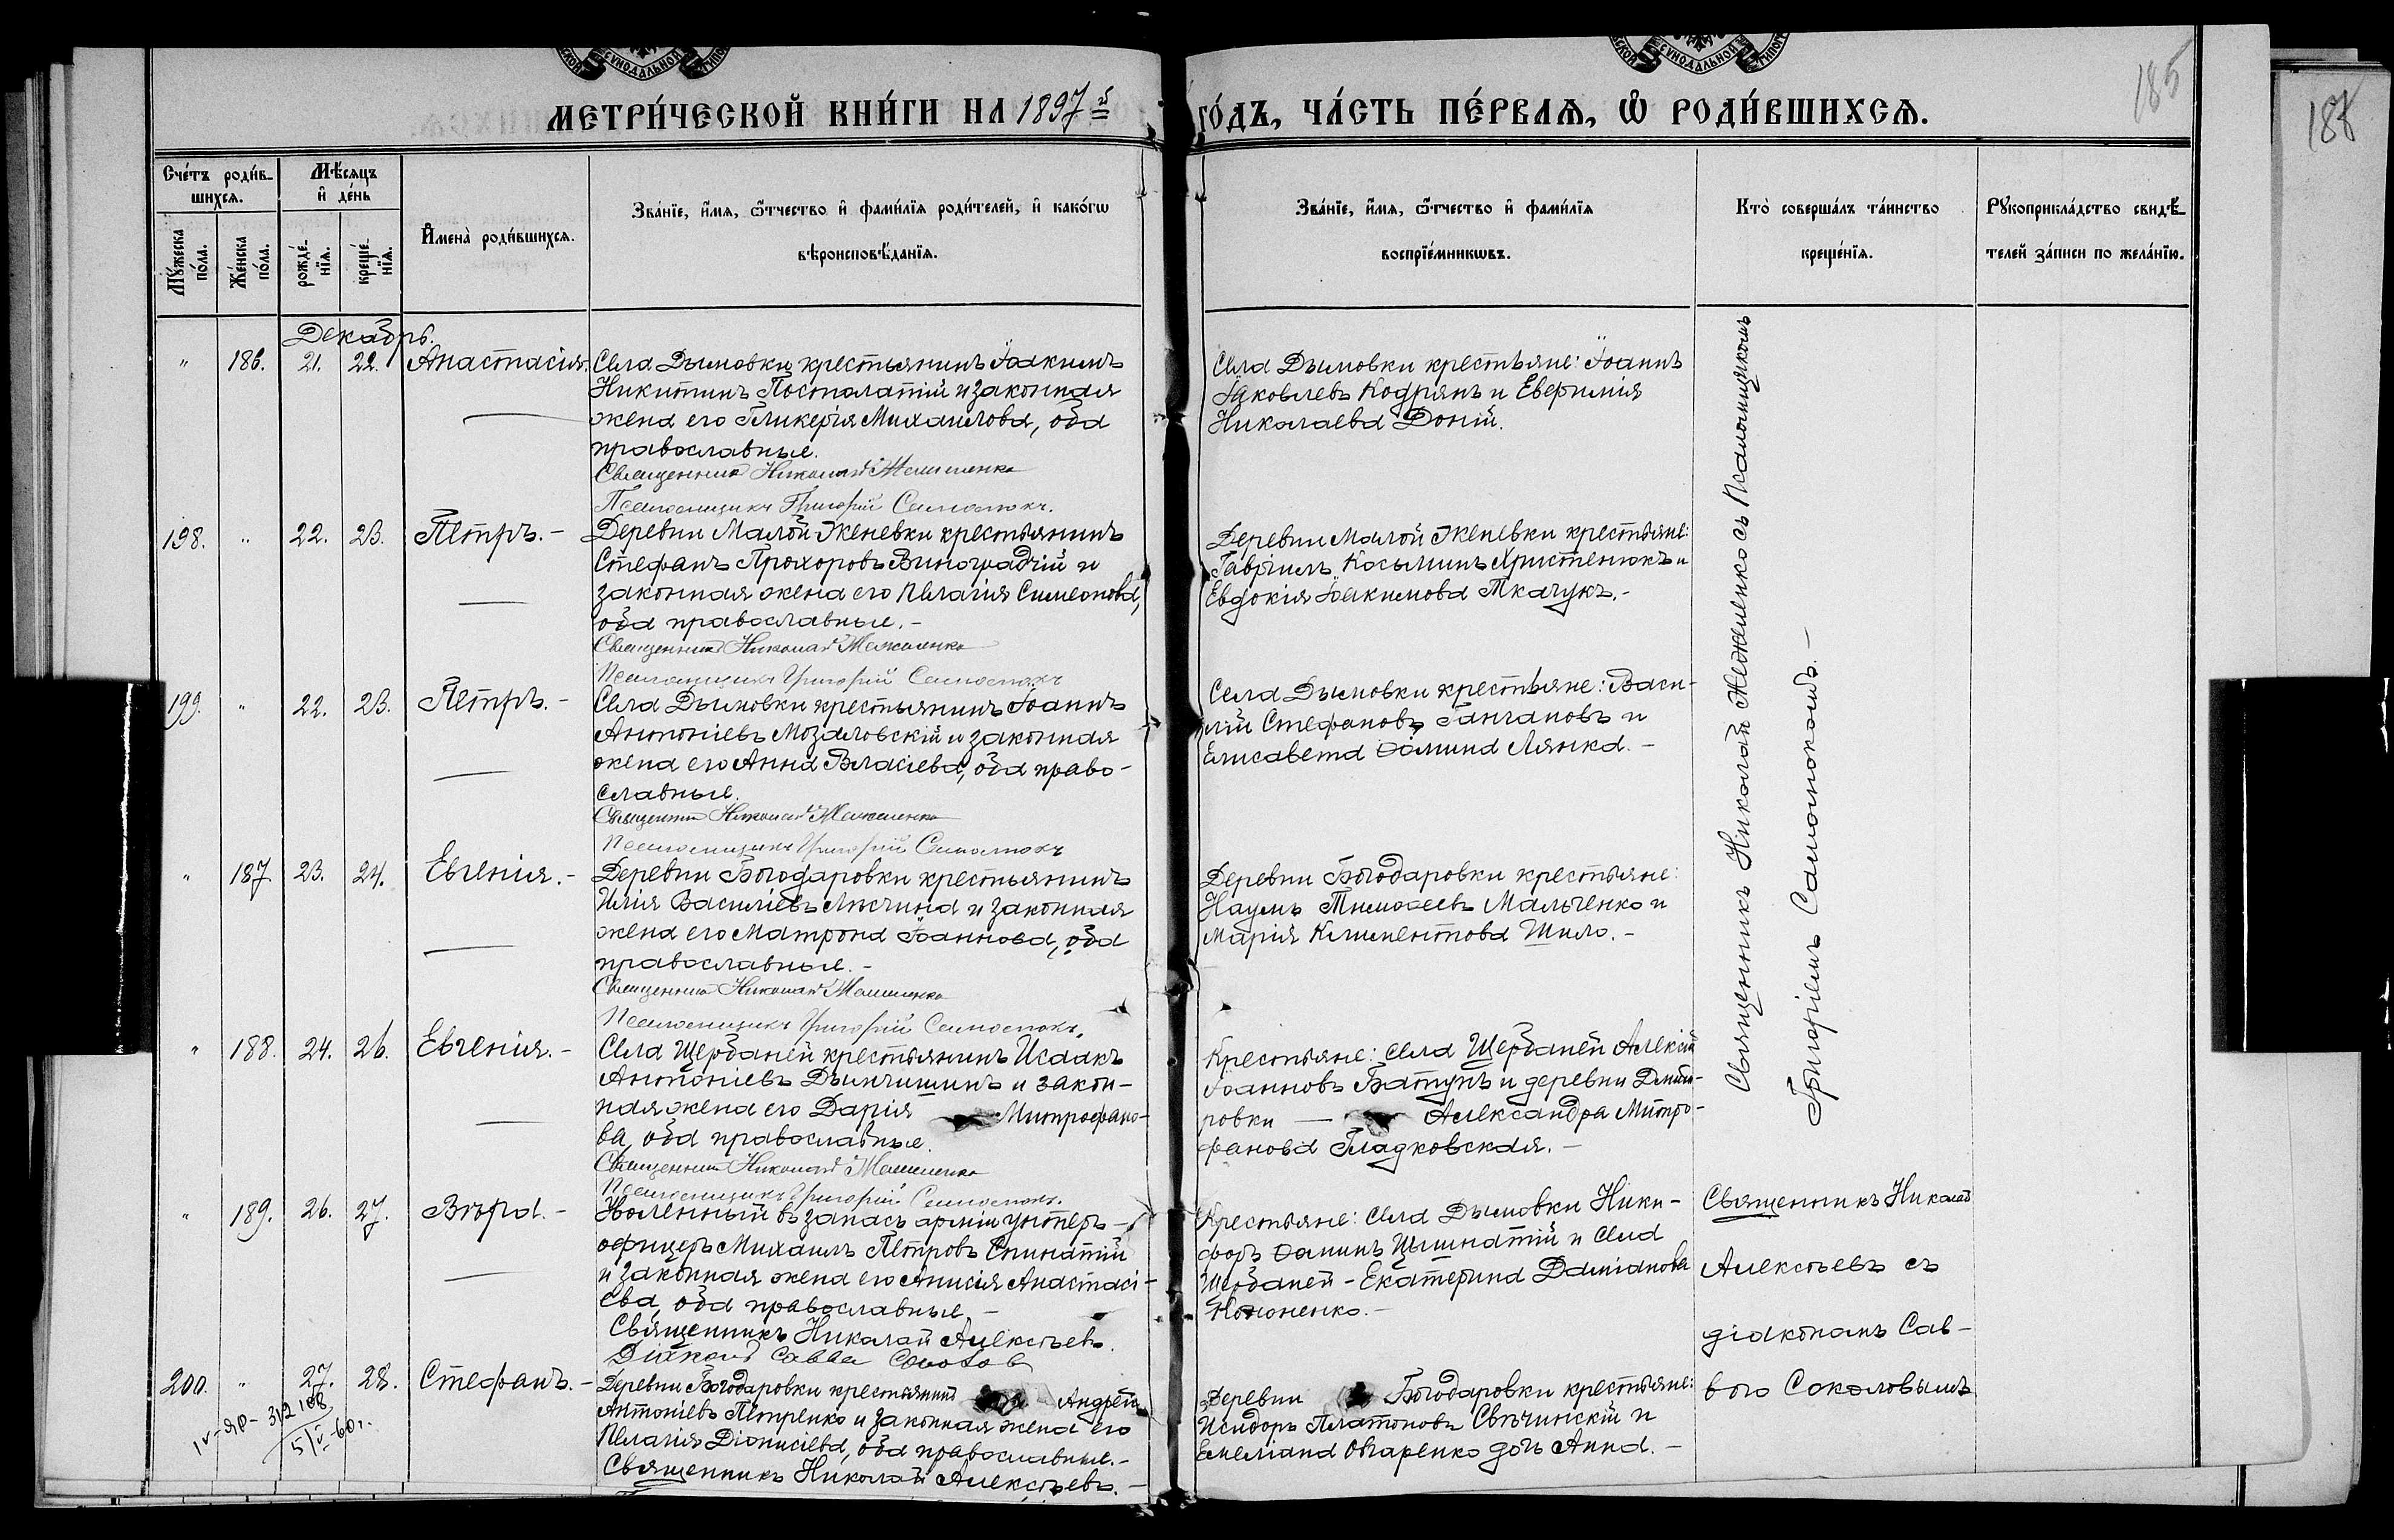 МЕТРИ́ЧЕСКОЙ КНИ́ГИ НА 1897й
ГО́ДЪ, ЧА́СТЬ ПЕ́РВАѦ, Ѽ РОДИ́ВШИХСѦ.
185
Сче́тъ роди́в-
шихсѧ.
Мѣ́сяцъ
и҆ де́нь
Мꙋ́жеска
по́ла.
Же́нска
по́ла.
рожде́-
нїѧ.
креще́-
нїѧ.
И҆мена̀ роди́вшихсѧ.
Зва́нїе, и҆́мѧ, ѻ҆́тчество и҆ фами́лїѧ роди́телей, и҆ како́гѡ
вѣроисповѣ́данїѧ.
Зва́нїе, и҆́мѧ, ѻ҆́тчество и҆ фами́лїѧ
воспрїе́мникѡвъ.
Кто̀ соверша́лъ та́инство
креще́нїѧ.
Рꙋкоприкла́дство свидѣ́-
телей за́писи по жела́нїю.
Декабрь.
" 186. 21. 22. Анастасія.
Села Дымовки крестьянинъ Іоакимъ
Никитинъ Постолатій и законная
жена его Гликерія Михаилова, оба
православные.
Священникъ Николай
Псаломщикъ Григорій Самостокъ.
Села Дымовки крестьяне: Іоаннъ
Іаковлевъ Кодрянъ и Евфимія
Николаева Доній.
198. " 22. 23. Петръ.-
Деревни Малой Женевки крестьянинъ
Стефанъ Прохоровъ Виноградчій и
законная жена его Пелагія Симеонова,
оба православные.-
Священникъ Николай
Псаломщикъ Григорій Самостокъ
Деревни Малой Женевки крестьяне:
Гавріилъ Косьминъ Христенюкъ и
Евдокія Іоакимова Ткачукъ.-
199. " 22. 23. Петръ.-
Села Дымовки крестьянинъ Іоаннъ
Антоніевъ Мозаловскій и законная
жена его Анна Власіева, оба право-
славные.
Священникъ Николай
Псаломщикъ Григорій Самостокъ
Села Дымовки крестьяне: Васи-
лій Стефановъ Ганчановъ и
Елисавета Ѳомина Лянка.-
" 187. 23. 24. Евгенія.-
Деревни Богодаровки крестьянинъ
Илія Василіевъ и законная
жена его Матрона Іоаннова, оба
православные.-
Священникъ Николай
Псаломщикъ Григорій Самостокъ.
Деревни Богодаровки крестьяне:
Наумъ Тимоѳеевъ Мальченко и
Марія Климентова Шило.-
" 188. 24. 26. Евгенія.-
Села Щербаней крестьянинъ Исаакъ
Антоніевъ Дымчишинъ и закон-
ная жена его Дарія Митрофано-
ва, оба православные.
Священникъ Николай
Псаломщикъ Григорій Самостокъ.
Крестьяне: села Щербаней Алексій
Іоанновъ Батунъ и деревни Дмит-
ровки — Александра Митро-
фанова Гладковская.-
Священникъ Николай съ Псаломщикомъ
Григоріемъ Самостокомъ.-
" 189. 26. 27. Вѣра.-
Уволенный въ запасъ арміи унтеръ-
офицеръ Михаилъ Петровъ Спинатій
и законная жена его Анисія Анастасі-
ева, оба православные.-
Священникъ Николай Алексѣевъ.
Діаконъ Савва Соколов
Крестьяне: села Дымовки Ники-
форъ Ѳоминъ и села
Щербаней - Екатерина Даміанова
Кононенко.-
Священникъ Николай
Алексѣевъ съ
діакономъ Сав-
вою Соколовымъ
200. " 27. 28. Стефанъ.-
Деревни Богодаровки крестьянинъ Андрей
Антоніевъ Петренко и законная жена его
Пелагія Діонисіева, оба православные.-
Священникъ Николай Алексѣевъ.-
Деревни Богодаровки крестьяне:
Исидоръ Платоновъ Свѣчинскій и
Емеліана Овчаренко дочь Анна.-